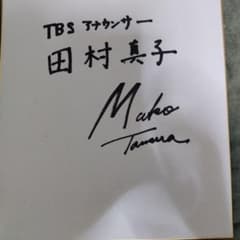 TBS アナウンサー
田村真子
Mako
Tamura